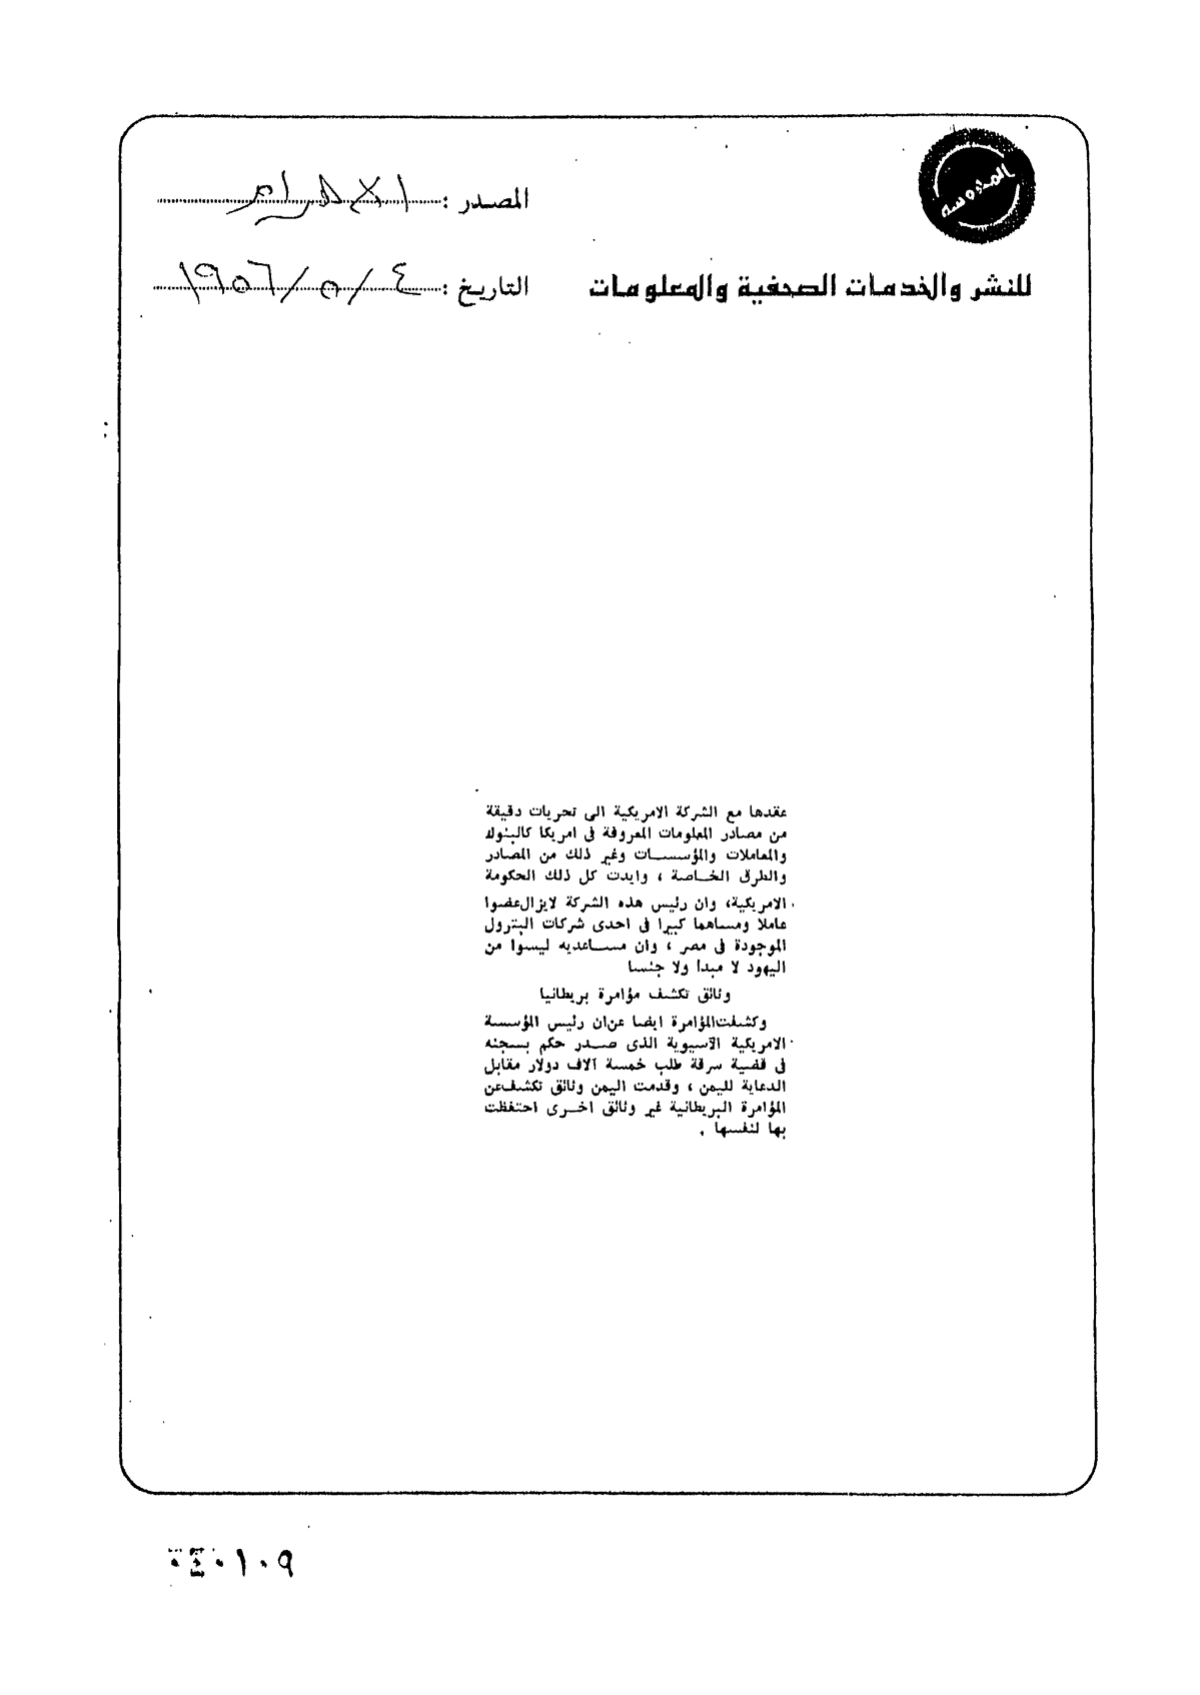 المحروسة
للنشر والخدمات الصحفية والمعلومات
المصدر : الاهرام
التاريخ : ٤ / ٥ / ١٩٥٦
عقدها مع الشركة الامريكية الى تحريات دقيقة
من مصادر المعلومات المعروفة فى امريكا كالبنوك
والمعاملات والمؤسسات وغير ذلك من المصادر
والطرق الخاصة ، وايدت كل ذلك الحكومة
الامريكية، وان رئيس هذه الشركة لايزال عضوا
عاملا ومساهما كبيرا فى احدى شركات البترول
الموجودة فى مصر ، وان مساعديه ليسوا من
اليهود لا مبدا ولا جنسا
وثائق تكشف مؤامرة بريطانيا
وكشفت المؤامرة ايضا عن ان رئيس المؤسسة
الامريكية الآسيوية الذى صدر حكم بسجنه
فى قضية سرقة طلب خمسة آلاف دولار مقابل
الدعاية لليمن ، وقدمت اليمن وثائق تكشف عن
المؤامرة البريطانية غير وثائق اخرى احتفظت
بها لنفسها .